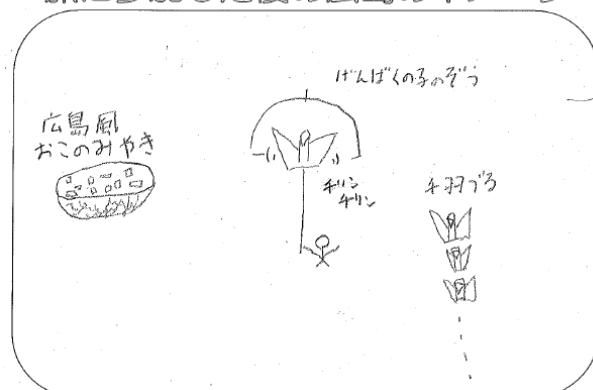 げんばくの子のぞう
広島風
おこのみやき
チリン
チリン
千羽づる